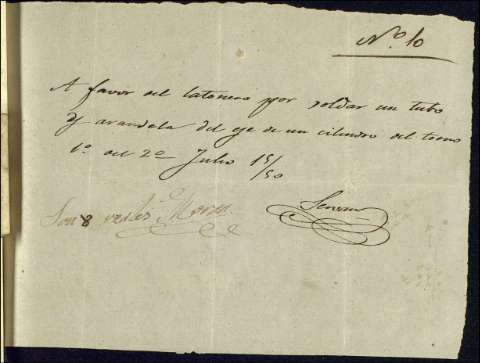 N.º 10
A favor del latonero por soldar un tubo
y arandela del eje de un cilindro del torno
1º del 2º Julio 15/
/50
Son 8 reales